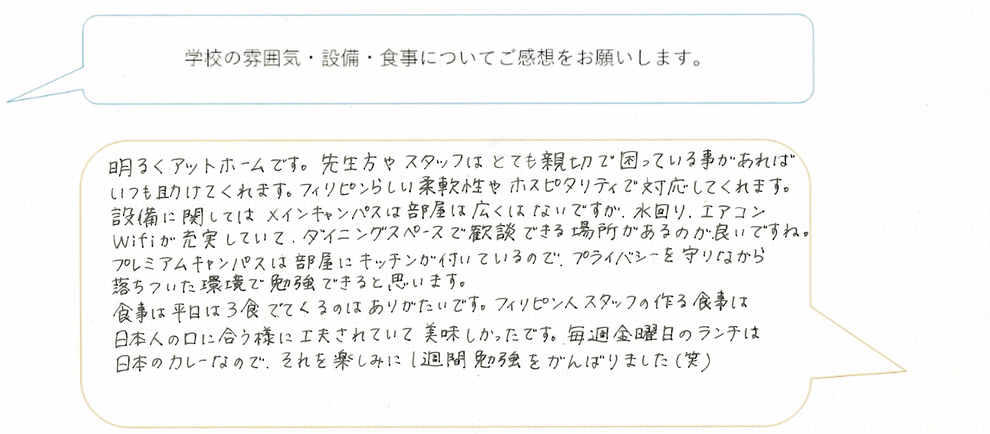 学校の雰囲気・設備・食事についてご感想をお願いします。
明るくアットホームです。先生方やスタッフはとても親切で困っている事があれば
いつも助けてくれます。フィリピンらしい柔軟性やホスピタリティで対応してくれます。
設備に関してはメインキャンパスは部屋は広くはないですが、水回り、エアコン
Wifiが充実していて、ダイニングスペースで歓談できる場所があるのが良いですね。
プレミアムキャンパスは部屋にキッチンが付いているので、プライバシーを守りながら
落ちついた環境で勉強できると思います。
食事は平日は3食でてくるのはありがたいです。フィリピン人スタッフの作る食事は
日本人の口に合う様に工夫されていて美味しかったです。毎週金曜日のランチは
日本のカレーなので、それを楽しみに1週間勉強をがんばりました(笑)